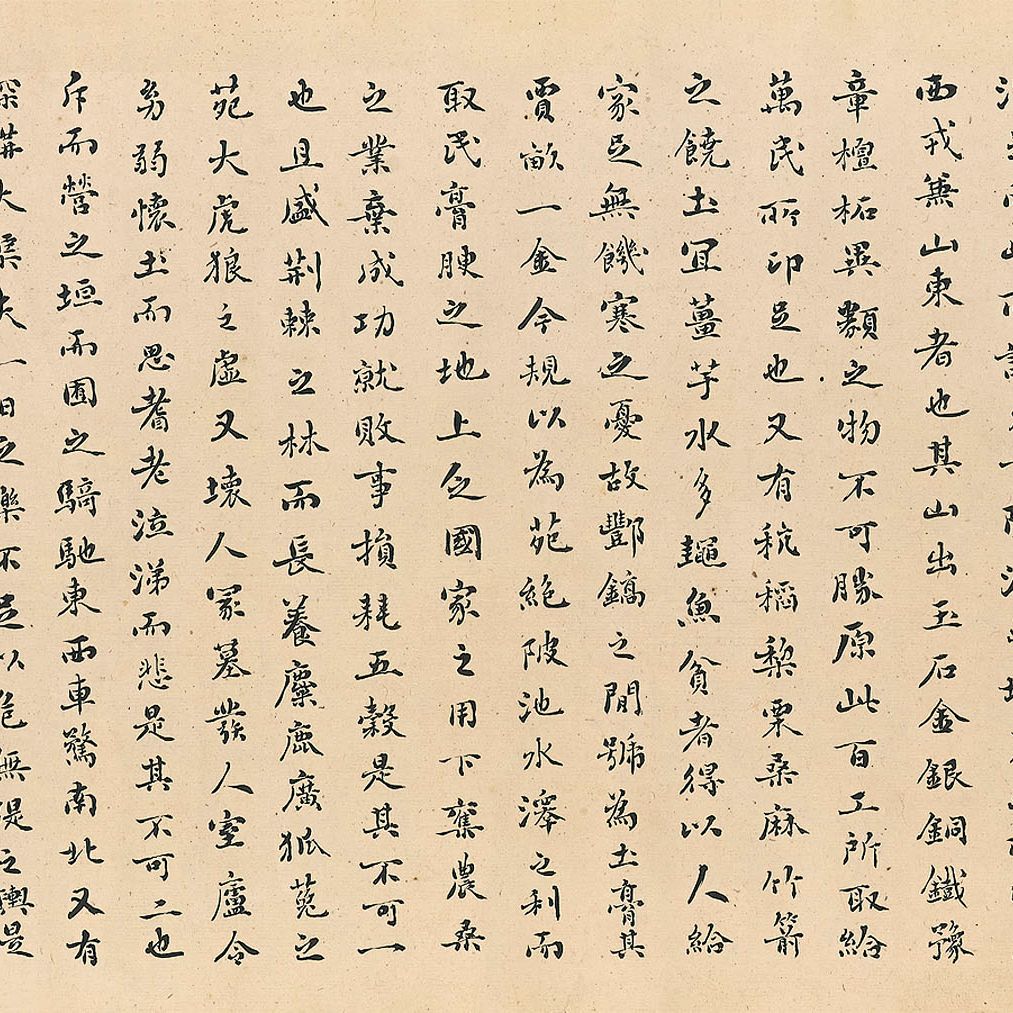 西戎兼山東者也其山出玉石金銀銅鐵豫
章檀柘異類之物不可勝原此百工所取給
萬民所卬足也又有秔稻梨栗桑麻竹箭
之饒土宜薑芋水多鼃魚貧者得以人給
家足無饑寒之憂故酆鎬之間號為土膏其
賈畝一金今規以為苑絕陂池水澤之利而
取民膏腴之地上乏國家之用下奪農桑
之業棄成功就敗事損耗五穀是其不可一
也且盛荊棘之林而長養麋鹿廣狐菟之
苑大虎狼之虛又壞人冢墓發人室廬令
幼弱懷土而思耆老泣涕而悲是其不可二也
斥而營之垣而囿之騎馳東西車騖南北又有
深溝大渠夫一日之樂不足以危無隄之輿是